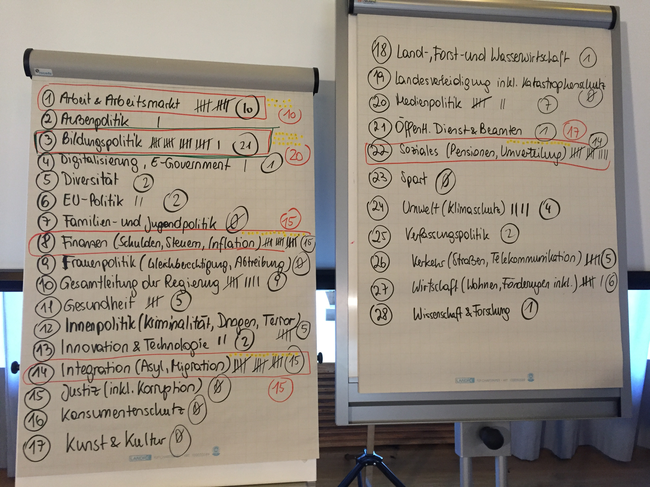 1 Arbeit & Arbeitsmarkt 10 10
2 Außenpolitik
3 Bildungspolitik 21 20
4 Digitalisierung, E-Government 1
5 Diversität 2
6 EU-Politik 2
7 Familien- und Jugendpolitik 0 15
8 Finanzen (Schulden, Steuern, Inflation) 15
9 Frauenpolitik (Gleichberechtigung, Abtreibung) 0
10 Gesamtleitung der Regierung 9
11 Gesundheit 5
12 Innenpolitik (Kriminalität, Drogen, Terror) 5
13 Innovation & Technologie 2
14 Integration (Asyl, Migration) 15
15 Justiz (inkl. Korruption) 0 15
16 Konsumentenschutz 0
17 Kunst & Kultur 0
18 Land-, Forst- und Wasserwirtschaft 1
19 Landesverteidigung inkl. Katastrophenschutz 0
20 Medienpolitik 7
21 Öffentl. Dienst & Beamten 1 17
22 Soziales (Pensionen, Umverteilung) 14
23 Sport 0
24 Umwelt (Klimaschutz) 4
25 Verfassungspolitik 2
26 Verkehr (Straßen, Telekommunikation) 5
27 Wirtschaft (Wohnen, Förderungen inkl.) 6
28 Wissenschaft & Forschung 1